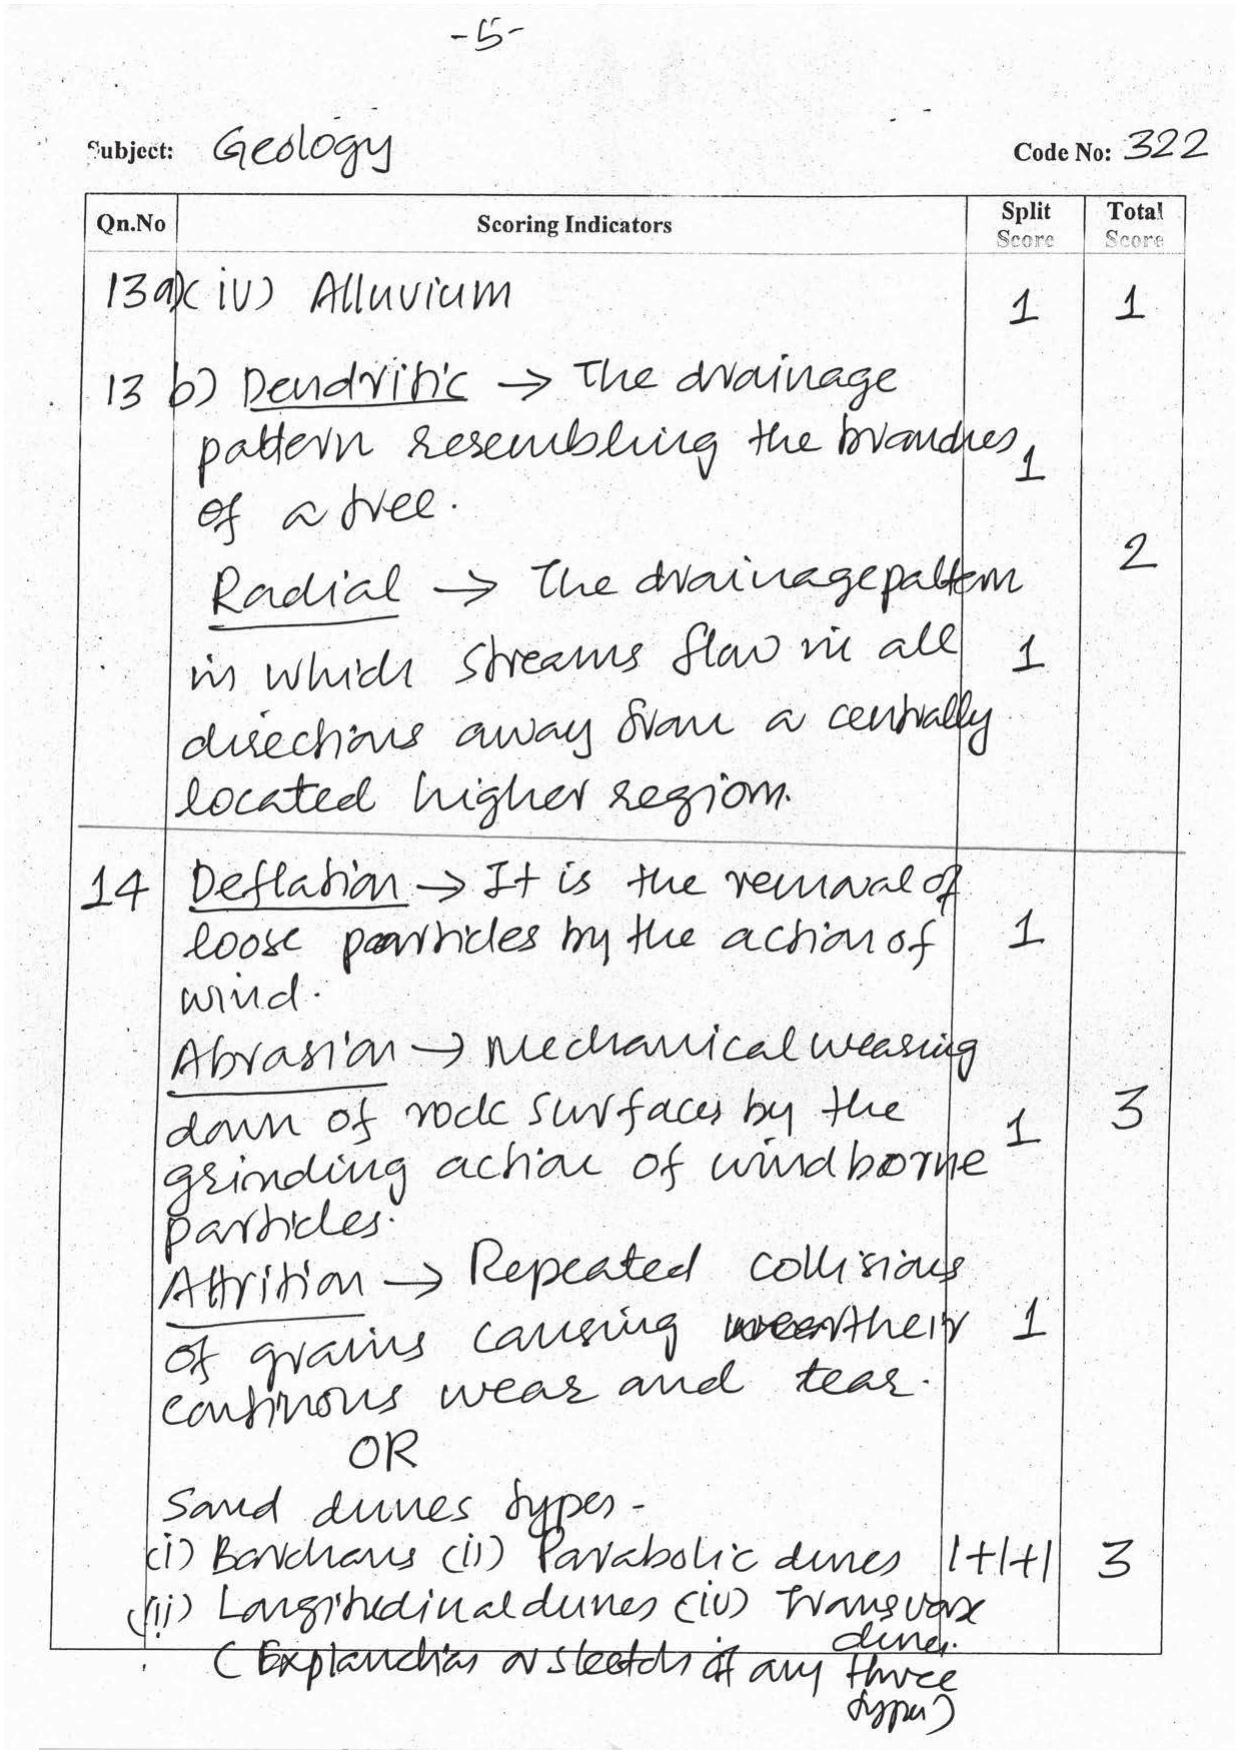 -5-
Subject: Geology Code No: 322
Qn.No Scoring Indicators Split Score Total Score
13 a) (iv) Alluvium 1 1
13 b) Dendritic → The drainage
pattern resembling the branches 1
of a tree.
2
Radial → The drainage pattern
in which streams flow in all 1
directions away from a centrally
located higher region.
14 Deflation → It is the removal of
loose particles by the action of 1
wind.
Abrasion → Mechanical wearing
down of rock surfaces by the 1 3
grinding action of wind borne
particles.
Attrition → Repeated collisions
of grains causing their 1
continous wear and tear.
OR
Sand dunes types -
(i) Barchans (ii) Parabolic dunes 1+1+1 3
(iii) Longitudinal dunes (iv) Transverse
dunes.
(Explanation or sketch of any three
types)